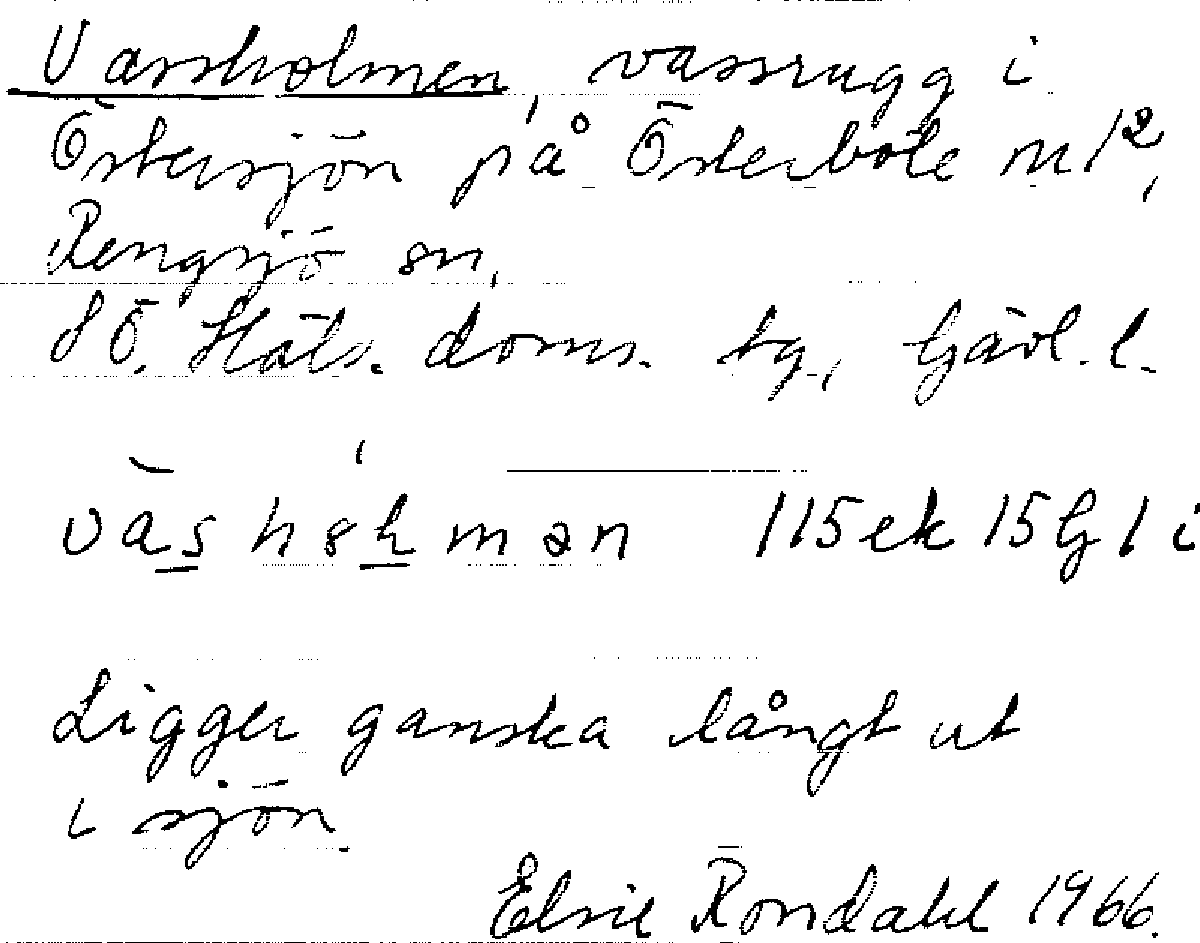 Vassholmen, vassrugg i
Östersjön på Österböle nr 1²,
Rengsjö sn,
SÖ. Häls. doms. tg., Gävl. l.
115 ek 15 G 1 i
Ligger ganska långt ut
i sjön.
Elsie Rondahl 1966.